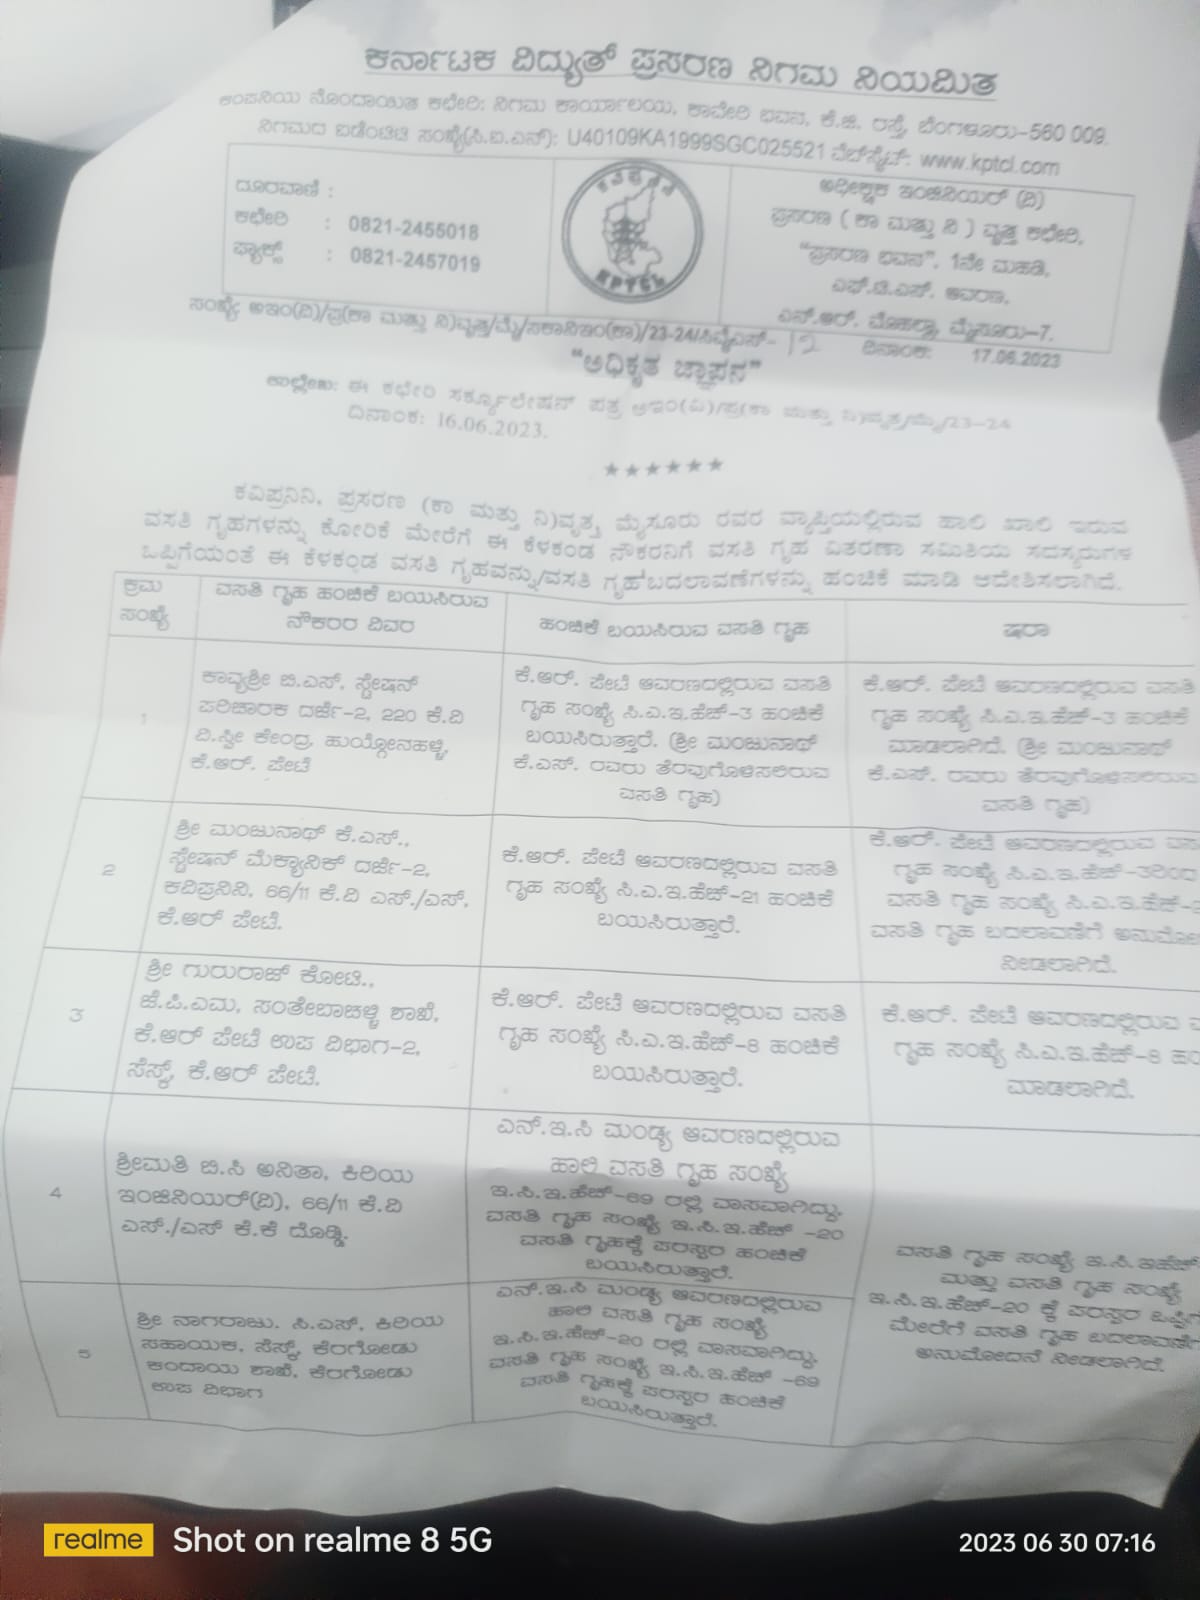 ಕರ್ನಾಟಕ ವಿದ್ಯುತ್ ಪ್ರಸರಣ ನಿಗಮ ನಿಯಮಿತ
ಕಂಪನಿಯ ನೊಂದಾಯಿತ ಕಛೇರಿ: ನಿಗಮ ಕಾರ್ಯಾಲಯ, ಕಾವೇರಿ ಭವನ, ಕೆ.ಜಿ. ರಸ್ತೆ, ಬೆಂಗಳೂರು-560 009.
ನಿಗಮದ ಐಡೆಂಟಿಟಿ ಸಂಖ್ಯೆ(ಸಿ.ಐ.ಎನ್): U40109KA1999SGC025521 ವೆಬ್‌ಸೈಟ್: www.kptcl.com
ದೂರವಾಣಿ :
ಕಛೇರಿ : 0821-2455018
ಫ್ಯಾಕ್ಸ್ : 0821-2457019
ಕವಿಪ್ರನಿನಿ
KPTCL
ಅಧೀಕ್ಷಕ ಇಂಜಿನಿಯರ್ (ವಿ)
ಪ್ರಸರಣ ( ಕಾ ಮತ್ತು ನಿ ) ವೃತ್ತ ಕಛೇರಿ,
"ಪ್ರಸರಣ ಭವನ", 1ನೇ ಮಹಡಿ,
ಎಫ್.ಟಿ.ಎಸ್. ಆವರಣ,
ಎನ್.ಆರ್. ಮೊಹಲ್ಲಾ, ಮೈಸೂರು-7.
ಸಂಖ್ಯೆ: ಅಇಂ(ವಿ)/ಪ್ರ(ಕಾ ಮತ್ತು ನಿ)ವೃತ್ತ/ಮೈ/ಸಕಾನಿಇಂ(ಕಾ)/23-24/ಸಿವೈಎಸ್- 12 ದಿನಾಂಕ: 17.06.2023
"ಅಧಿಕೃತ ಜ್ಞಾಪನ"
ಉಲ್ಲೇಖ: ಈ ಕಛೇರಿ ಸರ್ಕ್ಯೂಲೇಷನ್ ಪತ್ರ ಅಇಂ(ವಿ)/ಪ್ರ(ಕಾ ಮತ್ತು ನಿ)ವೃತ್ತ/ಮೈ/23-24
ದಿನಾಂಕ: 16.06.2023.
******
ಕವಿಪ್ರನಿನಿ, ಪ್ರಸರಣ (ಕಾ ಮತ್ತು ನಿ)ವೃತ್ತ, ಮೈಸೂರು ರವರ ವ್ಯಾಪ್ತಿಯಲ್ಲಿರುವ ಹಾಲಿ ಖಾಲಿ ಇರುವ
ವಸತಿ ಗೃಹಗಳನ್ನು ಕೋರಿಕೆ ಮೇರೆಗೆ ಈ ಕೆಳಕಂಡ ನೌಕರನಿಗೆ ವಸತಿ ಗೃಹ ವಿತರಣಾ ಸಮಿತಿಯ ಸದಸ್ಯರುಗಳ
ಒಪ್ಪಿಗೆಯಂತೆ ಈ ಕೆಳಕಂಡ ವಸತಿ ಗೃಹವನ್ನು/ವಸತಿ ಗೃಹ ಬದಲಾವಣೆಗಳನ್ನು ಹಂಚಿಕೆ ಮಾಡಿ ಆದೇಶಿಸಲಾಗಿದೆ.
ಕ್ರಮ ಸಂಖ್ಯೆ
ವಸತಿ ಗೃಹ ಹಂಚಿಕೆ ಬಯಸಿರುವ
ನೌಕರರ ವಿವರ
ಹಂಚಿಕೆ ಬಯಸಿರುವ ವಸತಿ ಗೃಹ
ಷರಾ
1
ಕಾವ್ಯಶ್ರೀ ಬಿ.ಎಸ್, ಸ್ಟೇಷನ್
ಪರಿಚಾರಕ ದರ್ಜೆ-2, 220 ಕೆ.ವಿ
ವಿ.ಸ್ವೀ ಕೇಂದ್ರ, ಹುಯ್ಗೋನಹಳ್ಳಿ,
ಕೆ.ಆರ್. ಪೇಟೆ
ಕೆ.ಆರ್. ಪೇಟೆ ಆವರಣದಲ್ಲಿರುವ ವಸತಿ
ಗೃಹ ಸಂಖ್ಯೆ ಸಿ.ಎ.ಇ.ಹೆಚ್-3 ಹಂಚಿಕೆ
ಬಯಸಿರುತ್ತಾರೆ. (ಶ್ರೀ ಮಂಜುನಾಥ್
ಕೆ.ಎಸ್. ರವರು ತೆರವುಗೊಳಿಸಲಿರುವ
ವಸತಿ ಗೃಹ)
ಕೆ.ಆರ್. ಪೇಟೆ ಆವರಣದಲ್ಲಿರುವ ವಸತಿ
ಗೃಹ ಸಂಖ್ಯೆ ಸಿ.ಎ.ಇ.ಹೆಚ್-3 ಹಂಚಿಕೆ
ಮಾಡಲಾಗಿದೆ. (ಶ್ರೀ ಮಂಜುನಾಥ್
ಕೆ.ಎಸ್. ರವರು ತೆರವುಗೊಳಿಸಲಿರುವ
ವಸತಿ ಗೃಹ)
2
ಶ್ರೀ ಮಂಜುನಾಥ್ ಕೆ.ಎಸ್.,
ಸ್ಟೇಷನ್ ಮೆಕ್ಯಾನಿಕ್ ದರ್ಜೆ-2,
ಕವಿಪ್ರನಿನಿ, 66/11 ಕೆ.ವಿ ಎಸ್./ಎಸ್,
ಕೆ.ಆರ್ ಪೇಟೆ.
ಕೆ.ಆರ್. ಪೇಟೆ ಆವರಣದಲ್ಲಿರುವ ವಸತಿ
ಗೃಹ ಸಂಖ್ಯೆ ಸಿ.ಎ.ಇ.ಹೆಚ್-21 ಹಂಚಿಕೆ
ಬಯಸಿರುತ್ತಾರೆ.
ಕೆ.ಆರ್. ಪೇಟೆ ಆವರಣದಲ್ಲಿರುವ
ಗೃಹ ಸಂಖ್ಯೆ ಸಿ.ಎ.ಇ.ಹೆಚ್-3ರಿಂದ
ವಸತಿ ಗೃಹ ಸಂಖ್ಯೆ ಸಿ.ಎ.ಇ.ಹೆಚ್-
ವಸತಿ ಗೃಹ ಬದಲಾವಣೆಗೆ
ನೀಡಲಾಗಿದೆ.
3
ಶ್ರೀ ಗುರುರಾಜ್ ಕೋಟಿ.,
ಜೆ.ಪಿ.ಎಮ, ಸಂತೇಬಾಚಳ್ಳಿ ಶಾಖೆ,
ಕೆ.ಆರ್ ಪೇಟೆ ಉಪ ವಿಭಾಗ-2,
ಸೆಸ್ಕ್, ಕೆ.ಆರ್ ಪೇಟೆ.
ಕೆ.ಆರ್. ಪೇಟೆ ಆವರಣದಲ್ಲಿರುವ ವಸತಿ
ಗೃಹ ಸಂಖ್ಯೆ ಸಿ.ಎ.ಇ.ಹೆಚ್-8 ಹಂಚಿಕೆ
ಬಯಸಿರುತ್ತಾರೆ.
ಕೆ.ಆರ್. ಪೇಟೆ ಆವರಣದಲ್ಲಿರುವ
ಗೃಹ ಸಂಖ್ಯೆ ಸಿ.ಎ.ಇ.ಹೆಚ್-8
ಮಾಡಲಾಗಿದೆ.
4
ಶ್ರೀಮತಿ ಬಿ.ಸಿ ಅನಿತಾ, ಕಿರಿಯ
ಇಂಜಿನಿಯರ್(ವಿ), 66/11 ಕೆ.ವಿ
ಎಸ್./ಎಸ್ ಕೆ.ಕೆ ದೊಡ್ಡಿ.
ಎನ್.ಇ.ಸಿ ಮಂಡ್ಯ ಆವರಣದಲ್ಲಿರುವ
ಹಾಲಿ ವಸತಿ ಗೃಹ ಸಂಖ್ಯೆ
ಇ.ಸಿ.ಇ.ಹೆಚ್-69 ರಲ್ಲಿ ವಾಸವಾಗಿದ್ದು,
ವಸತಿ ಗೃಹ ಸಂಖ್ಯೆ ಇ.ಸಿ.ಇ.ಹೆಚ್ -20
ವಸತಿ ಗೃಹಕ್ಕೆ ಪರಸ್ಪರ ಹಂಚಿಕೆ
ಬಯಸಿರುತ್ತಾರೆ.
5
ಶ್ರೀ ನಾಗರಾಜು. ಸಿ.ಎಸ್, ಕಿರಿಯ
ಸಹಾಯಕ, ಸೆಸ್ಕ್, ಕೆರಗೋಡು
ಕಂದಾಯ ಶಾಖೆ, ಕೆರಗೋಡು
ಉಪ ವಿಭಾಗ
ಎನ್.ಇ.ಸಿ ಮಂಡ್ಯ ಆವರಣದಲ್ಲಿರುವ
ಹಾಲಿ ವಸತಿ ಗೃಹ ಸಂಖ್ಯೆ
ಇ.ಸಿ.ಇ.ಹೆಚ್-20 ರಲ್ಲಿ ವಾಸವಾಗಿದ್ದು,
ವಸತಿ ಗೃಹ ಸಂಖ್ಯೆ ಇ.ಸಿ.ಇ.ಹೆಚ್ -69
ವಸತಿ ಗೃಹಕ್ಕೆ ಪರಸ್ಪರ ಹಂಚಿಕೆ
ಬಯಸಿರುತ್ತಾರೆ.
ವಸತಿ ಗೃಹ ಸಂಖ್ಯೆ ಇ.ಸಿ.ಇಹೆಚ್
ಮತ್ತು ವಸತಿ ಗೃಹ ಸಂಖ್ಯೆ
ಇ.ಸಿ.ಇ.ಹೆಚ್-20 ಕ್ಕೆ ಪರಸ್ಪರ
ಮೇರೆಗೆ ವಸತಿ ಗೃಹ ಬದಲಾವಣೆಗೆ
ಅನುಮೋದನೆ ನೀಡಲಾಗಿದೆ.
realme Shot on realme 8 5G 2023 06 30 07:16